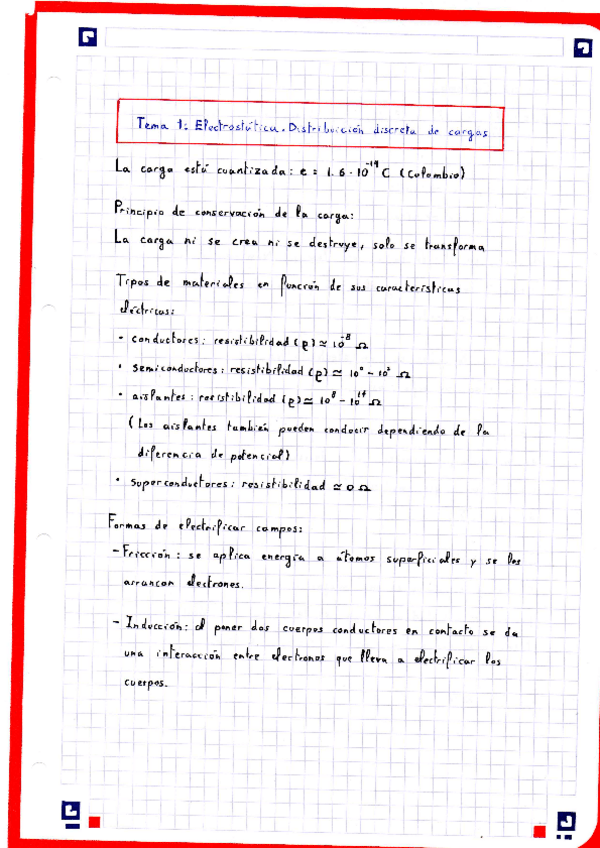 Tema 1: Electrostática. Distribuición discreta de cargas
La carga está cuantizada: e = 1.6·10⁻¹⁹ C (Culombio)
Principio de conservación de la carga:
La carga ni se crea ni se destruye, solo se transforma
Tipos de materiales en función de sus características
eléctricas:
· conductores: resistibilidad (ρ) ≃ 10⁻⁸ Ω
· semiconductores: resistibilidad (ρ) ≃ 10⁰ - 10³ Ω
· aislantes: resistibilidad (ρ) ≃ 10⁸ - 10¹⁷ Ω
(Los aislantes también pueden conducir dependiendo de la
diferencia de potencial)
· superconductores: resistibilidad ≃ 0 Ω
Formas de electrificar campos:
- Fricción: se aplica energía a átomos superficiales y se les
arrancan electrones.
- Inducción: al poner dos cuerpos conductores en contacto se da
una interacción entre electrones que lleva a electrificar los
cuerpos.